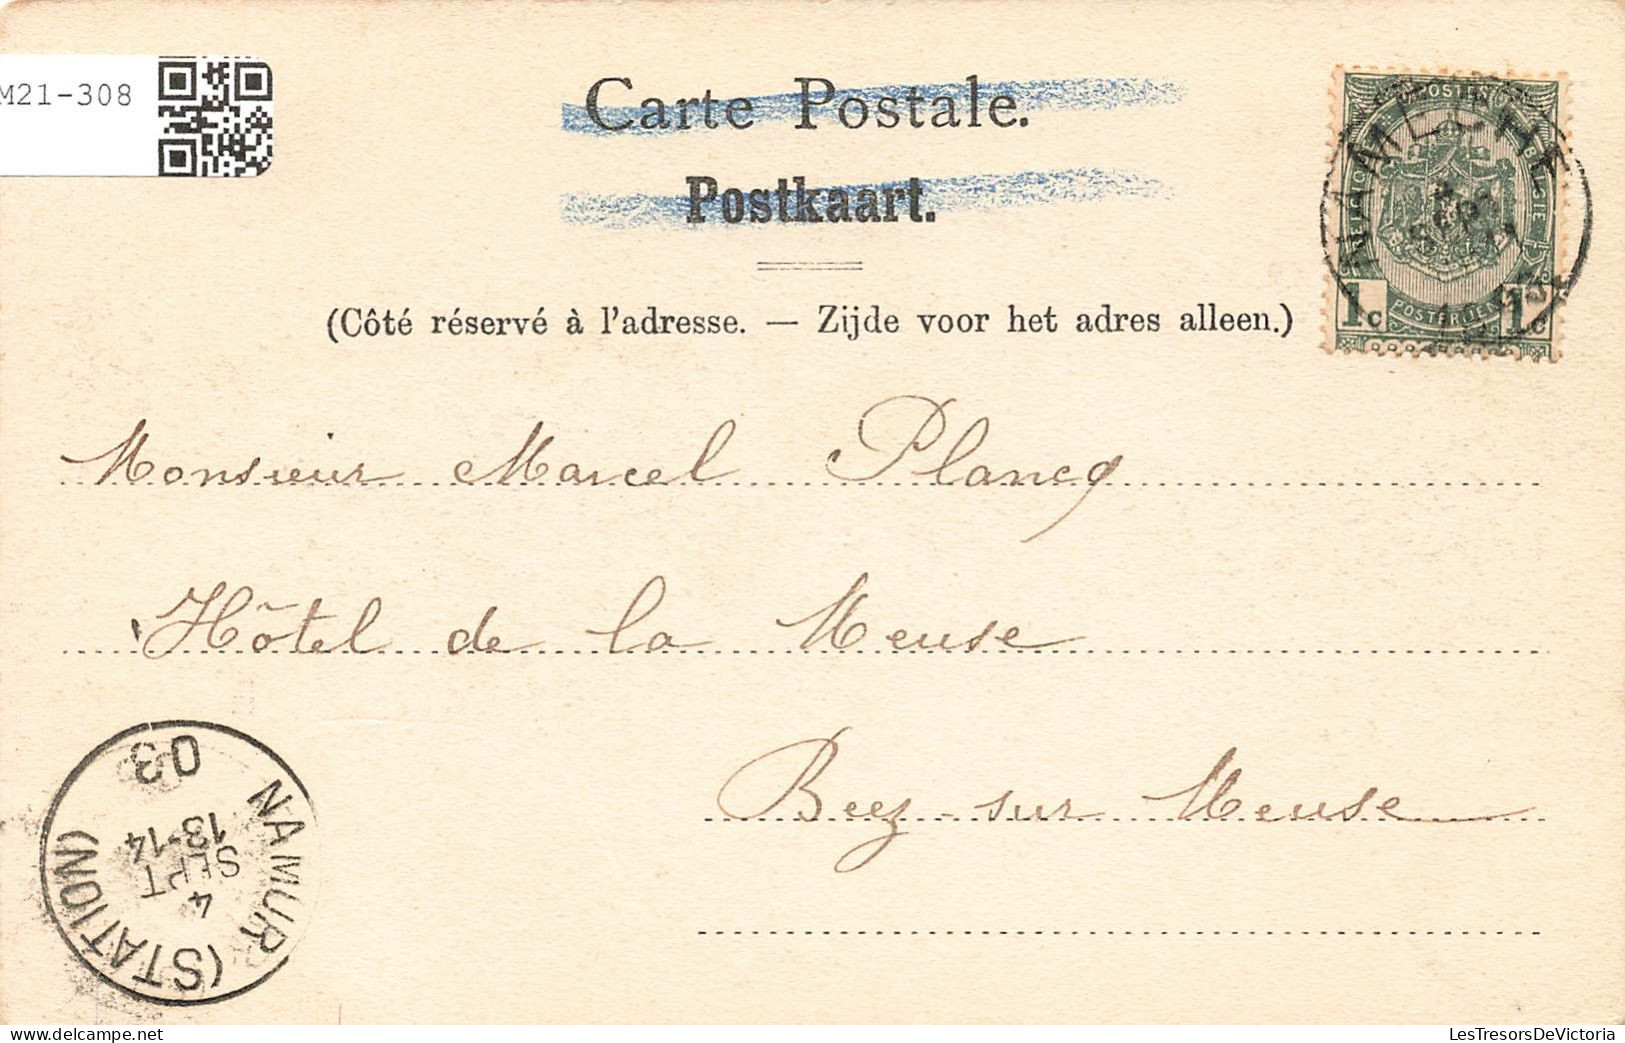 M21-308
Carte Postale.
Postkaart.
(Côté réservé à l'adresse. — Zijde voor het adres alleen.)
POSTES
BELGIQUE
BELGIË
1c POSTERIJEN 1c
NAMECHE
Monsieur Marcel Plancq
Hôtel de la Meuse
Beez-sur Meuse
NAMUR (STATION)
4
SEPT
13-14
03
LesTresorsDeVictoria